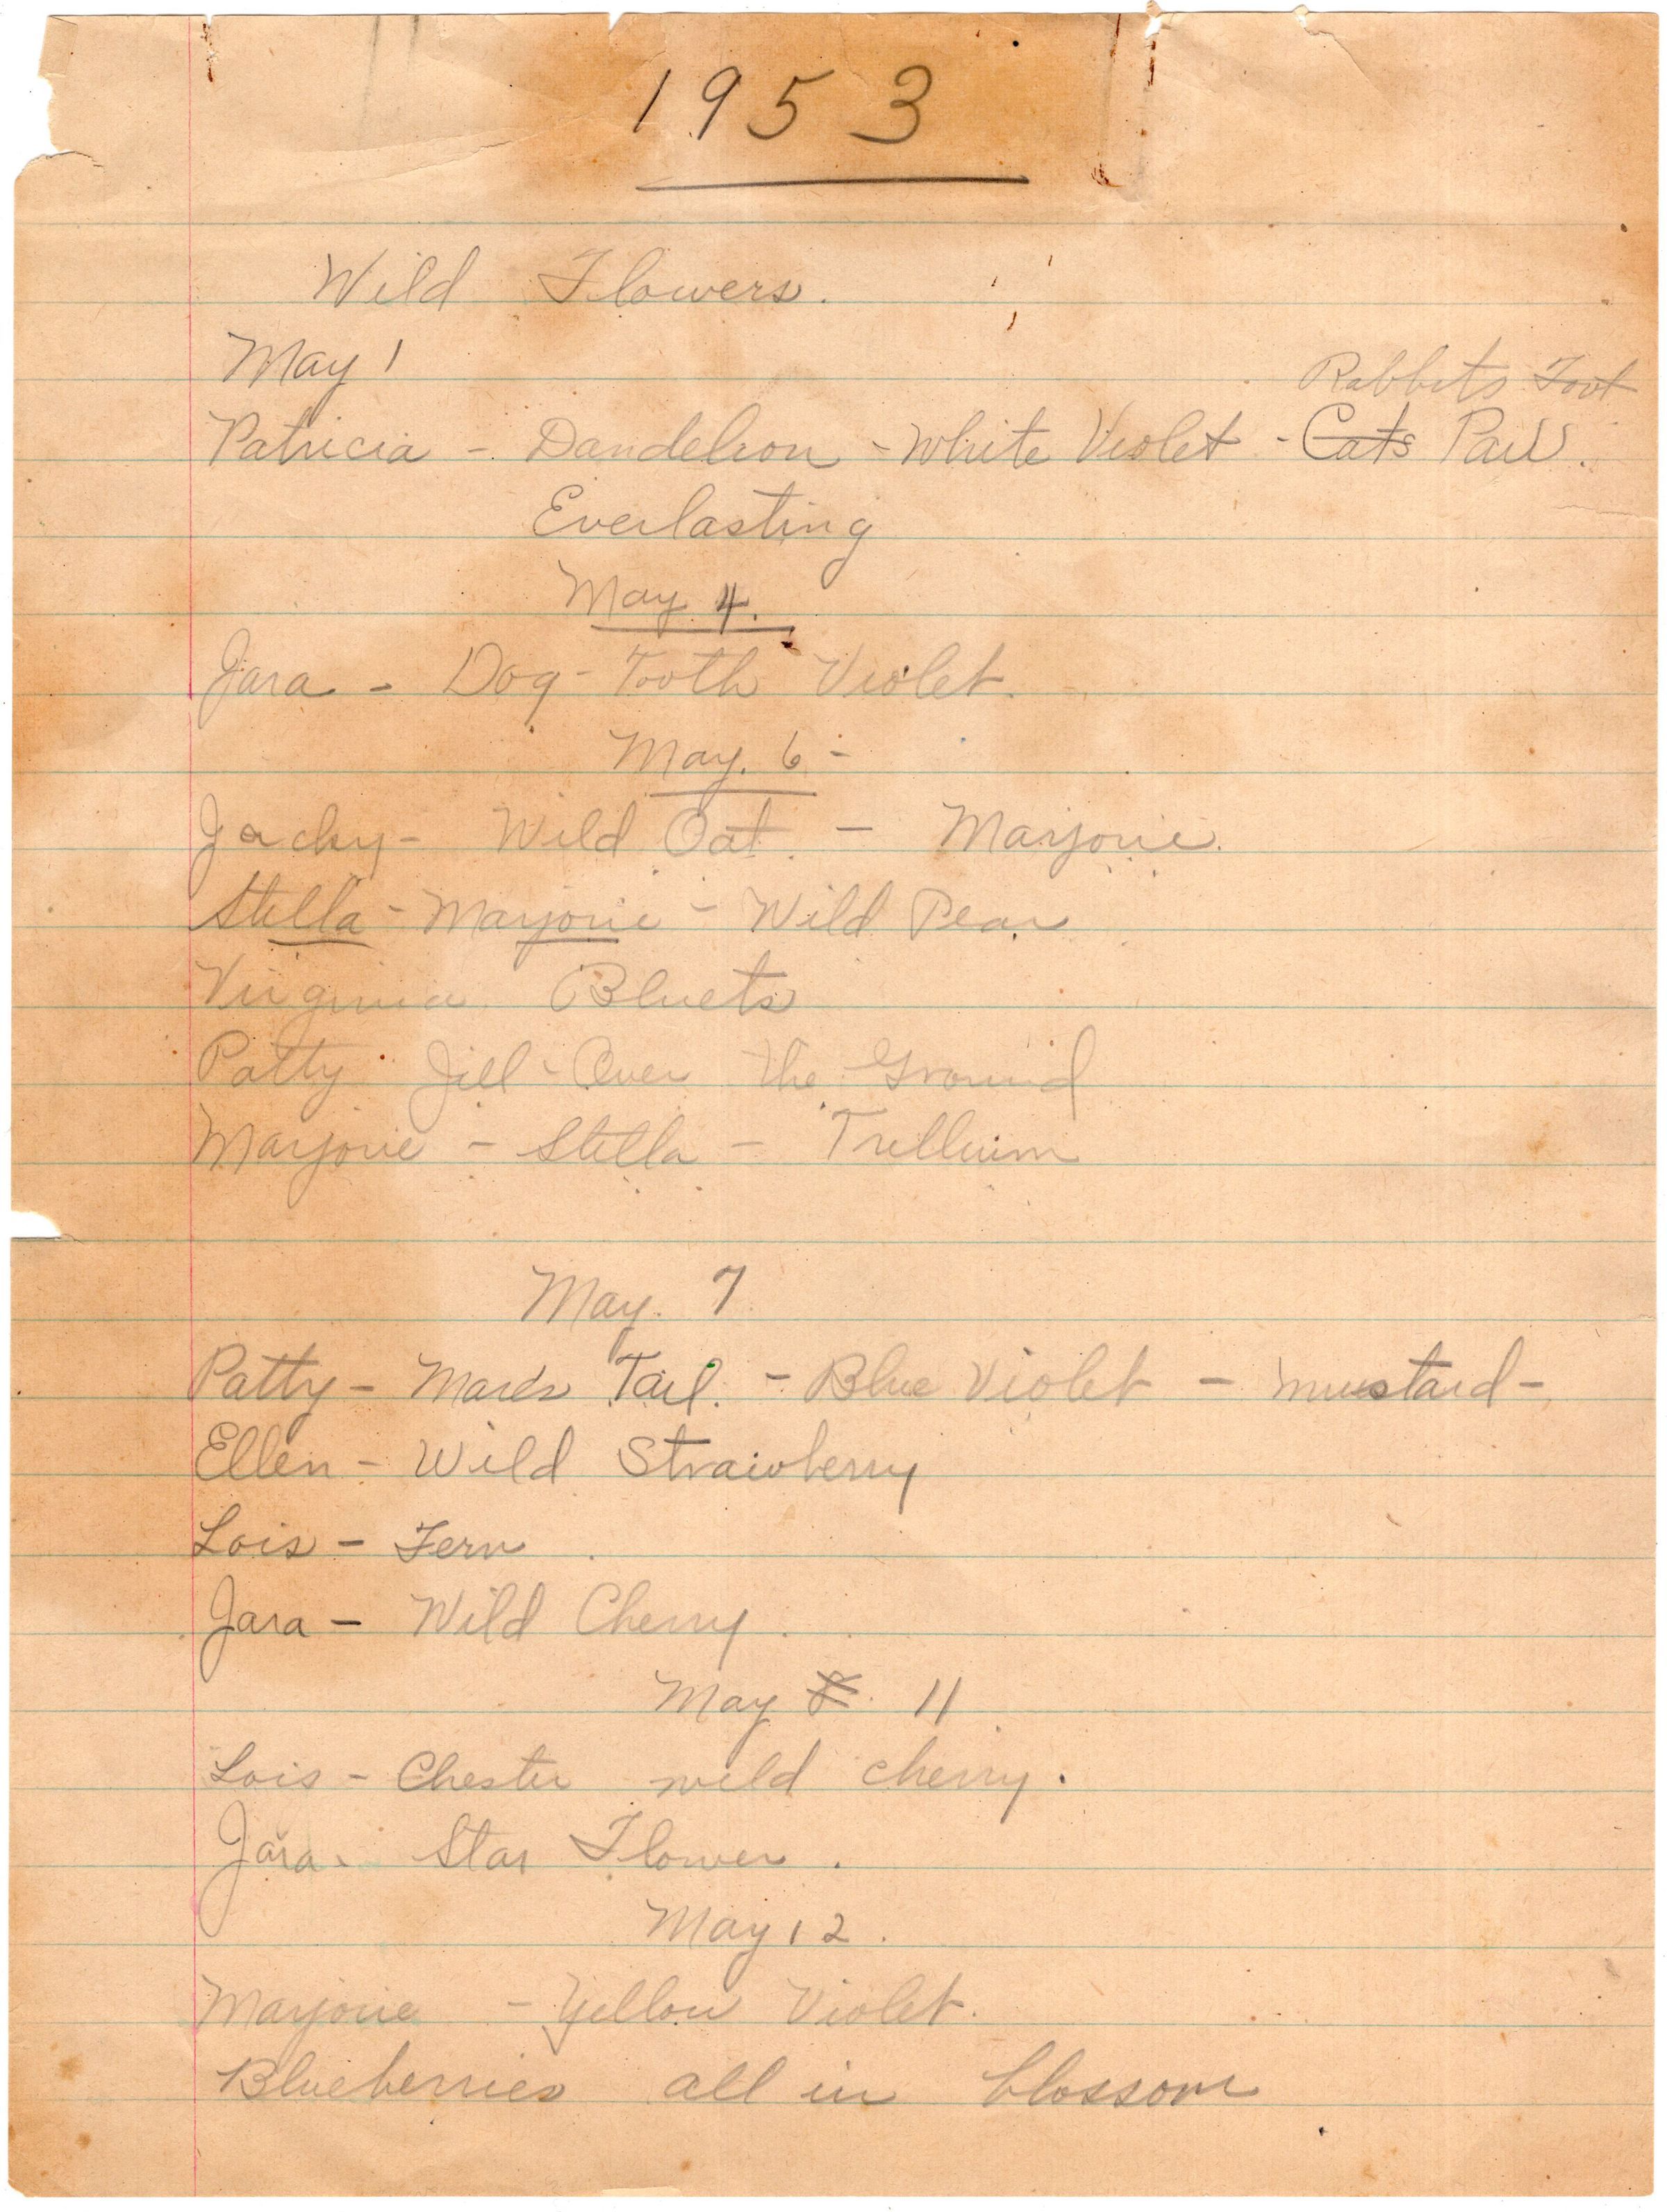 1953
Wild Flowers.
May 1
Rabbits Foot
Patricia - Dandelion - White Violet - Cats Paw.
Everlasting
May 4.
Jara - Dog-Tooth Violet.
May. 6 -
Jacky - Wild Oat. - Marjorie.
Stella - Marjorie - Wild Pear
Virginia Bluets
Patty Jill-Over the Ground
Marjorie - Stella - Trillium
May. 7
Patty - Mares Tail. - Blue Violet - Mustard -
Ellen - Wild Strawberry
Lois - Fern
Jara - Wild Cherry.
May 8. 11
Lois - Chester wild cherry.
Jara. Star Flower.
May 12.
Marjorie - Yellow Violet.
Blueberries all in blossom